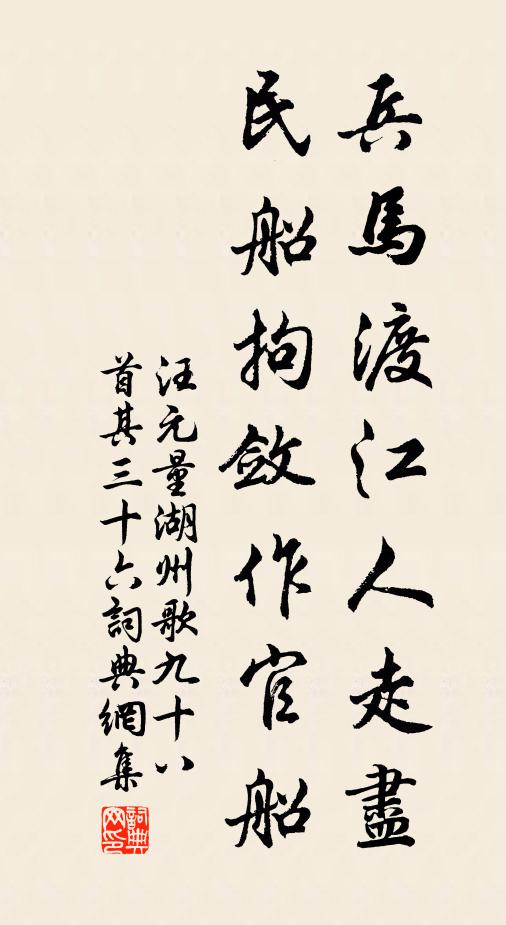 兵馬渡江人走盡
民船拘斂作官船
汪元量湖州歌九十八
首其三十六詞典網集
詞典
网印